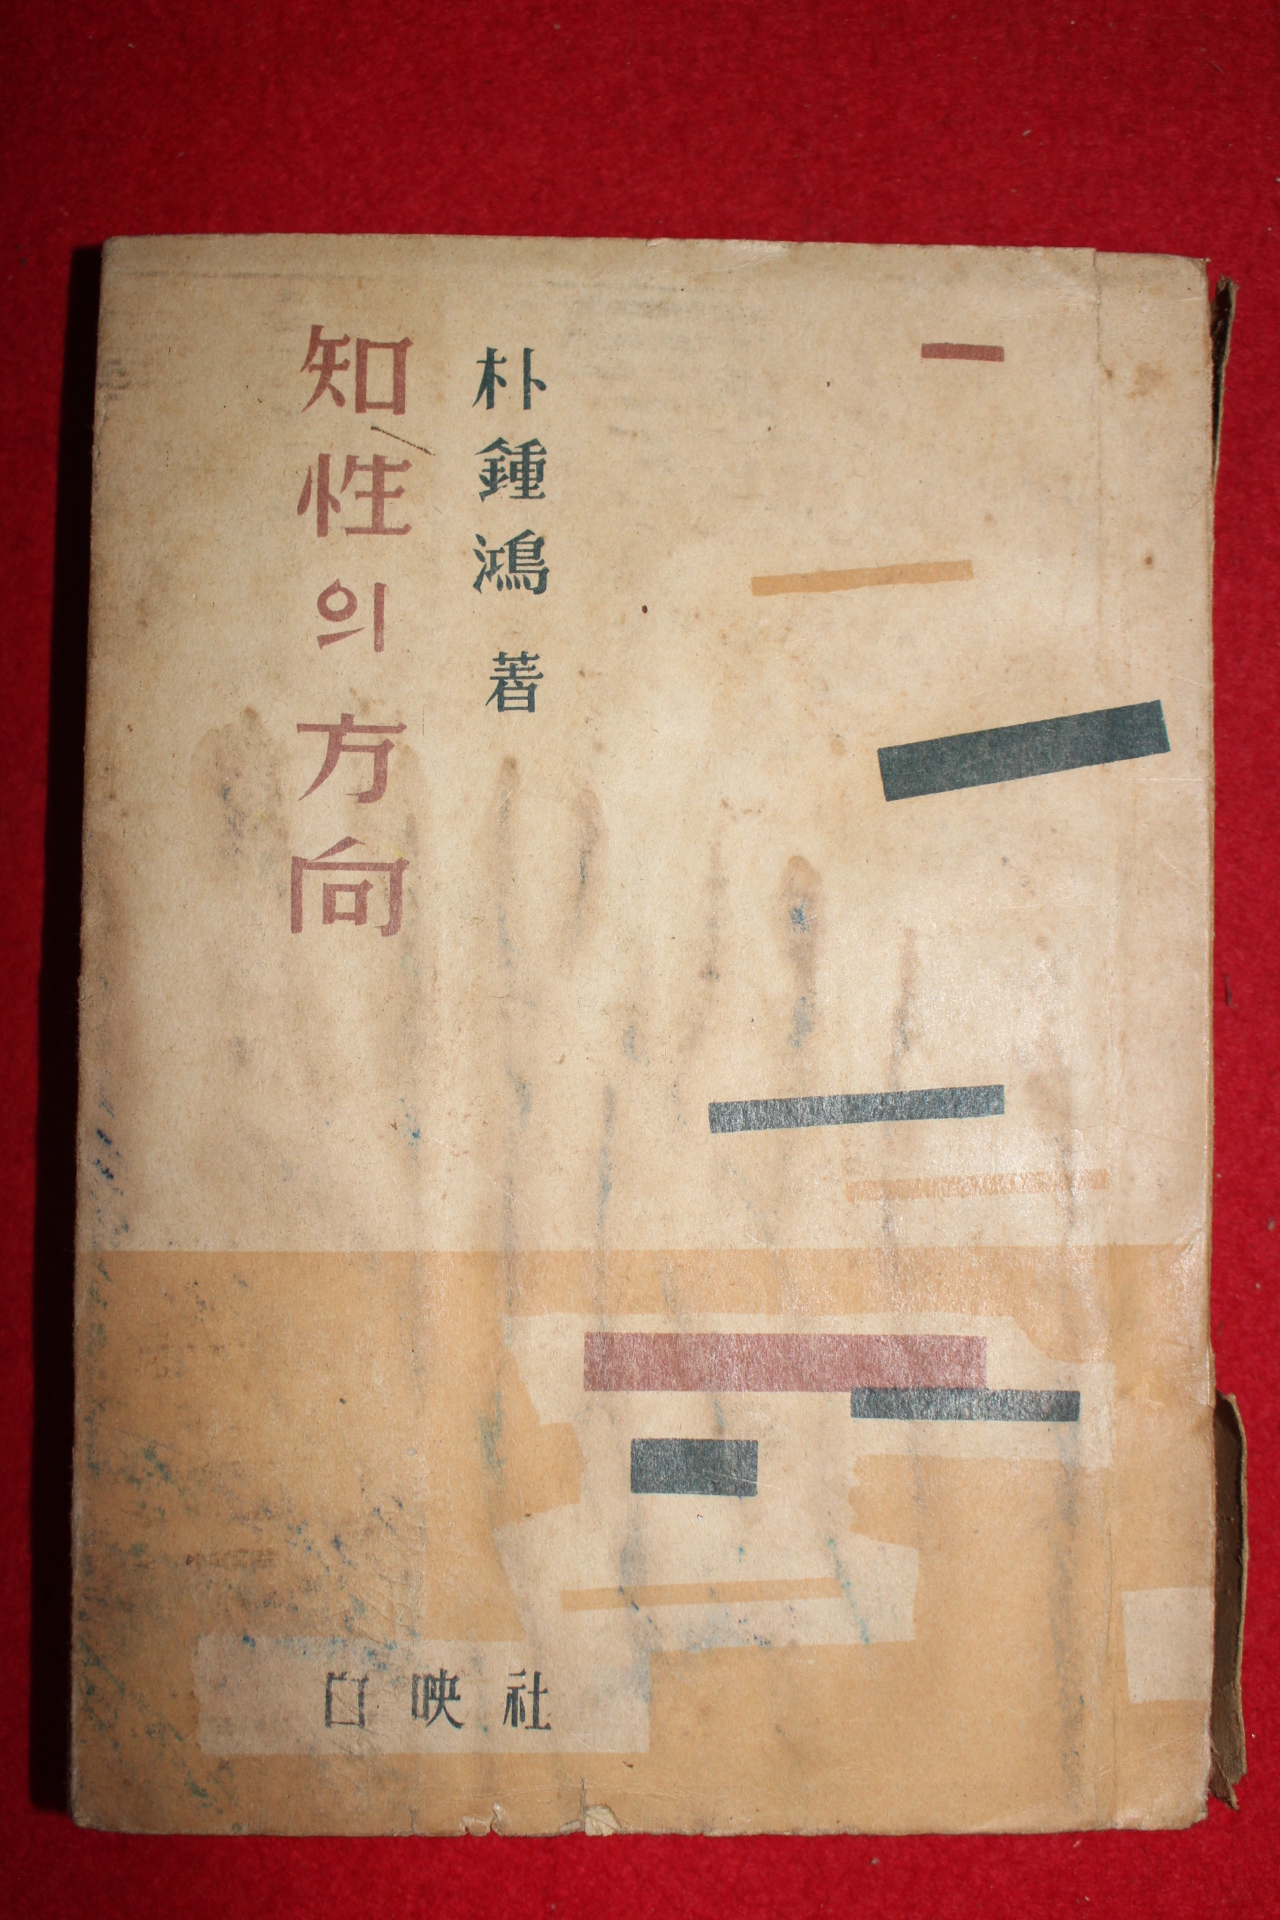 朴鍾鴻 著
知性의 方向
白映社